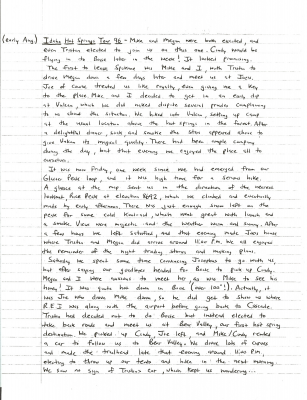 (early Aug.) Idaho Hot Springs Tour 96 - Mike and Megan were both excited, and
even Tristan elected to join us on this one. Cindy would be
flying in to Boise later in the week! It looked promising.
The first to leave Spokane was Mike and I, with Tristan to
drive Megan down a few days later and meet us at Joe's.
Joe of course treated us like royalty, even giving us a key
to the place. Mike and I decided to get in an early dip
at Vulcan, which we did naked despite several prudes complaining
to us about the situation. We hiked into Vulcan, setting up camp
at the usual location above the hot springs in the forest. After
a delightful dinner, soak and smoke the stars appeared above to
give Vulcan its magical quality. There had been people camping
during the day, but that evening we enjoyed the place all to
ourselves.
It was now Friday, one week since we had emerged from our
Glacier Peak loop, and it was high time for a serious hike.
A glance at the map sent us in the direction of the nearest
lookout, Rice Peak at elevation 8692, which we climbed and
made by early afternoon. There was just enough snow left on the
peak for some cold which went great with lunch and
a smoke. View were majestic and the weather warm and sunny. After
a few hours we left satisfied and that evening made Joe's house
where Tristan and Megan did arrive around 11:00 P.M. We all enjoyed
the remainder of the night trading stories and making plans.
Saturday we spent some time convincing Jonathan to go with us,
but after saying our goodbyes headed for Boise to pick up Cindy.
Megan and I were anxious to meet her as was Mike to see his
honey! It was quite hot down in Boise (over 100°!). Actually, it
was Joe who drove Mike down, so he did get to show us where
R.E.I. was along with the airport before going back to Cascade.
Tristan had decided not to do Boise but instead elected to
take back roads and meet us at Bear Valley, our first hot spring
destination. We picked up Cindy, Joe left, and Mike/Cindy rented
a car to follow us to Bear Valley. We drove lots of curves
and made the trailhead late that evening around 11:00 P.M.,
electing to throw up our tents and hike in the next morning.
We saw no sign of Tristan's car, which kept us wondering...